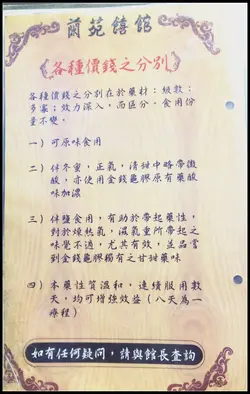 蘭苑饎館
各種價錢之分別
各種價錢之分別在於藥材：級數：
多寡：效力深入，而區分．食用份
量不變．
一）可原味食用
二）伴冬蜜，正氣，清甜中略帶微
酸，亦使用金錢龜膠原有藥酸
味加濃
三）伴鹽食用，有助於帶起藥性，
對於燥熱氣，濕氣重所帶起之
味覺不過，尤其有效，並品嘗
到金錢龜膠獨有之甘甜藥味
四）本藥性質溫和，連續服用數
天，均可增強效益（八天為一
療程）
如有任何疑問，請與館長查詢